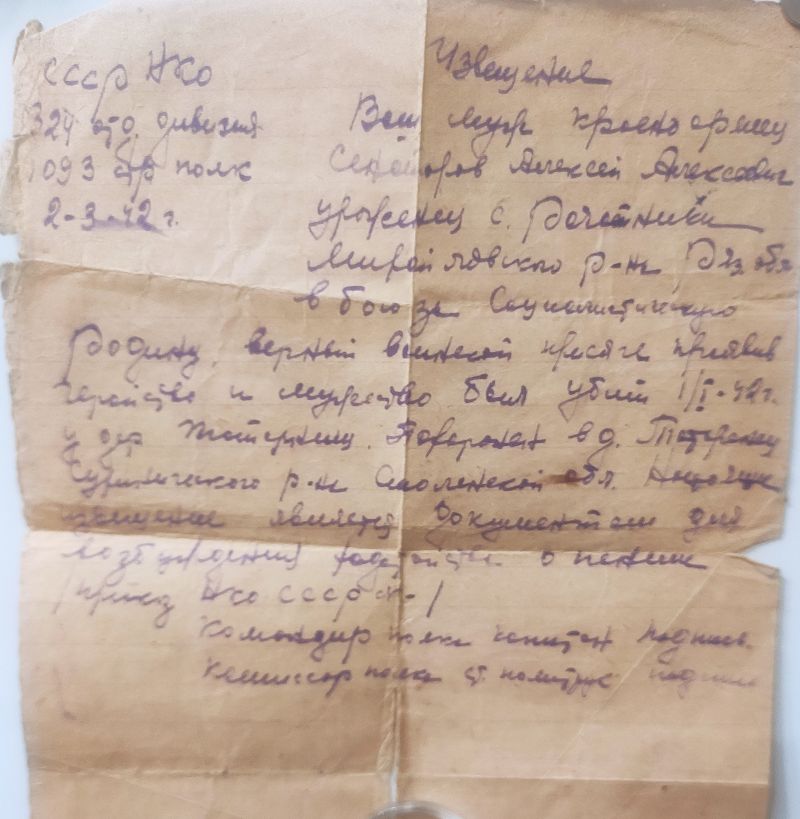 СССР НКО
Извещение
324 отд. дивизия
1093 стр полк
2-3-42 г.
Ваш муж красноармеец
Сенаторов Алексей Алексеевич
уроженец с.
Михайловского р-на Ряз обл
в бою за Социалистическую
Родину, верный воинской присяге проявив
геройство и мужество был убит 1/I-42 г.
у дер Похоронен в д.
Сухиничского р-на Смоленской обл. Настоящее
извещение является документом для
возбуждения ходатайства о пенсии
/приказ НКО СССР № - /
Командир полка капитан подпись.
Комиссар полка ст политрук подпись